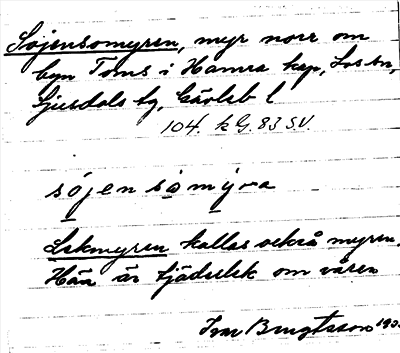 Sojensomyren, myr norr om
byn Toms i Hamra kap, Los sn,
Ljusdals tg, Gävleb l
104. k G. 83 S.V.
sójen sò mýra
Lekmyren kallas också myren.
Här är tjäderlek om våren
Ivar Bengtsson